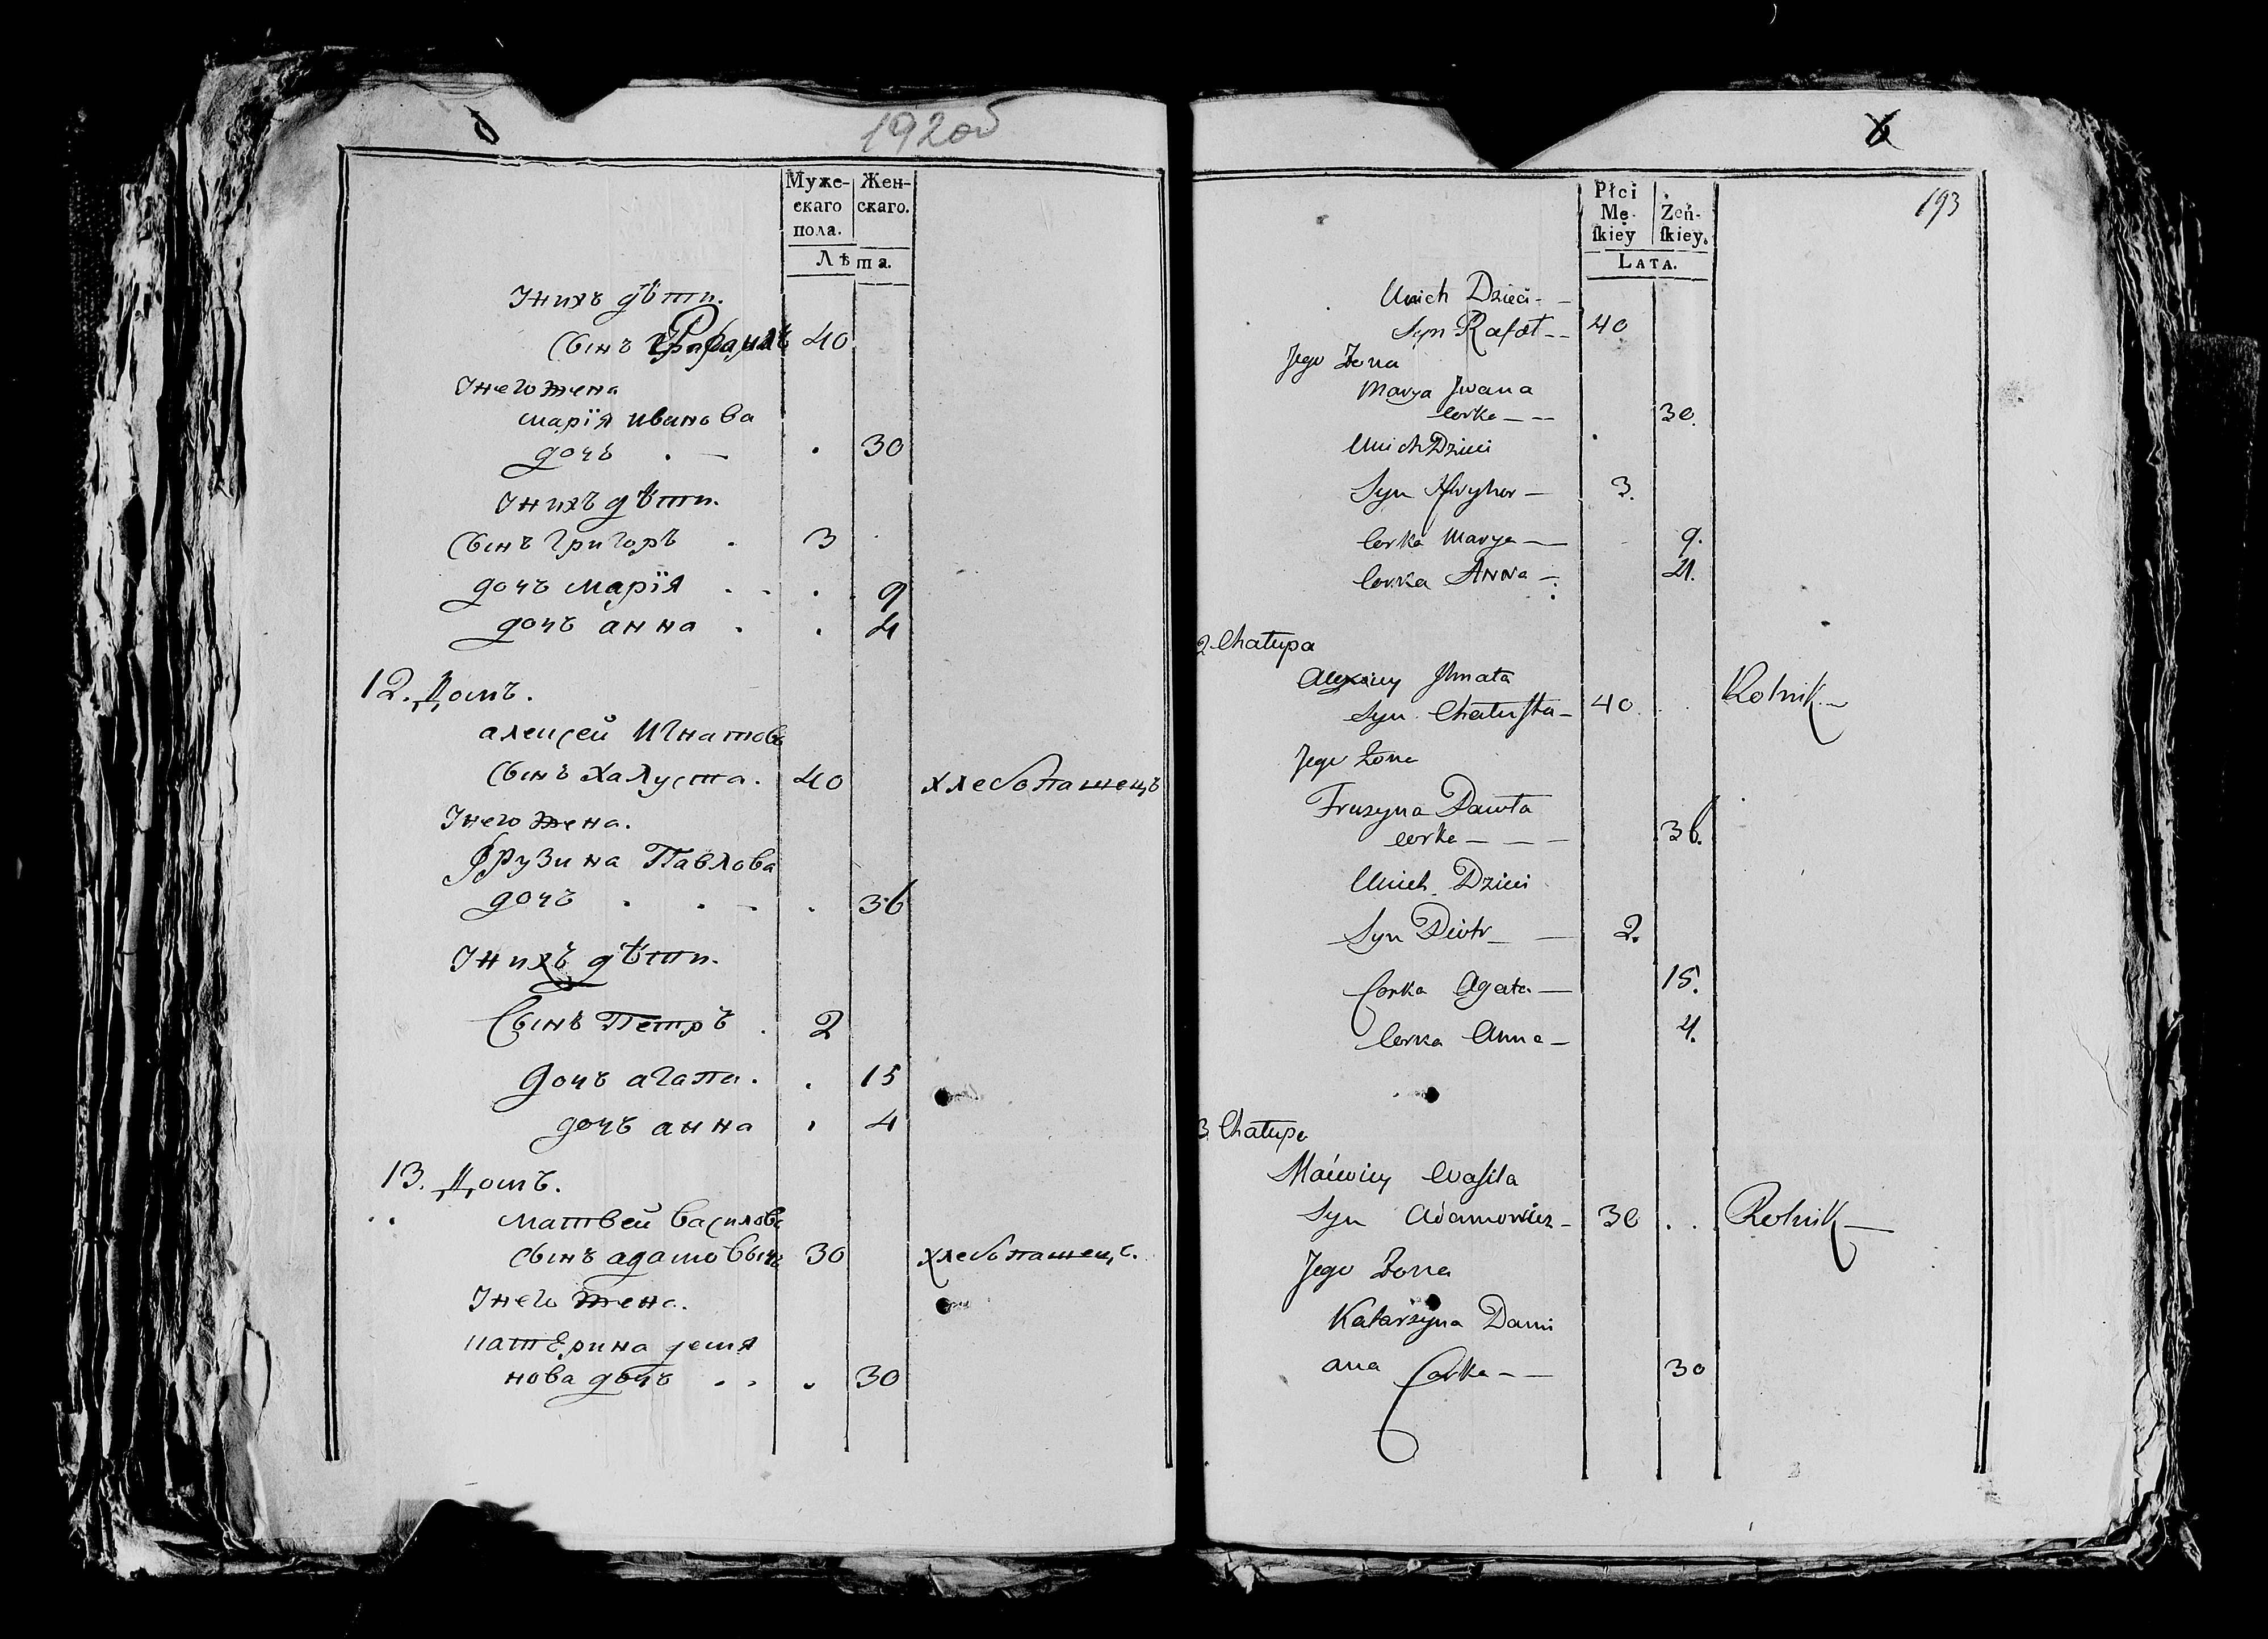 192об
Муже-
скаго
пола.
Жен-
скаго.
Лѣта.
Унихъ дѣти.
Сынъ Рафаилъ 40
Унего жена
марїя иванова
дочъ . - . 30
Унихъ дѣти.
Сынъ григоръ . 3
дочъ марїя . . . 9
дочъ анна . . 4
12. Домъ.
алексей Игнатовъ
сынъ халуста. 40 хлебопашецъ
Унего жена.
Фрузина Павлова
дочъ . . - . 36
Унихъ дѣти.
Сынъ Петръ . 2
Дочъ агапа. . 15
дочъ анна . 4
13. Домъ.
матвей василовъ
сынъ адамовичъ 30 хлебопашецъ.
Унего жена.
катерина демя
нова дочъ . . . 30
193
Płci
Mę-
ſkiey
Żeń-
ſkiey.
LATA.
Unich Dzieci -
Syn Rafał - - 40
Jego Żona
Marya Jwana
Corka - - 30.
Unich Dzieci
Syn Hryhor - 3.
Corka Marya - 9.
Corka Anna - 4.
2 Chałupa
Alexiey Jhnata
Syn Chałuſta - 40 . . Rolnik -
Jego Żona
Fruzyna Pawła
corka - - - 36.
Unich Dzieci
Syn Piotr - - 2.
Corka Agata - 15.
Corka Anna - 4.
3 Chałupa
Maćwiey Waſila
Syn Adamowicz - 30 . . Rolnik -
Jego Żona
Katarzyna Dami
ana Corka - - 30